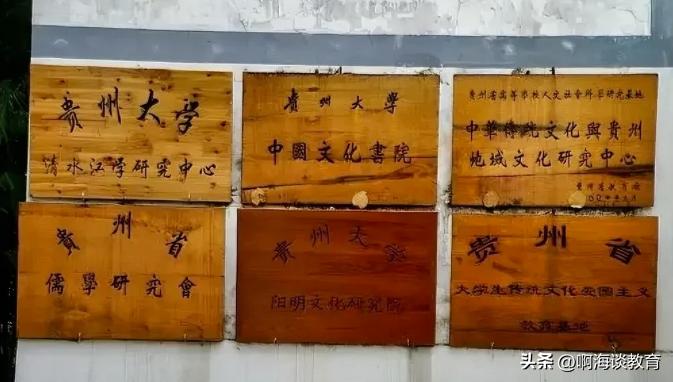 贵州大学
清水江学研究中心
貴州大學
中國文化書院
貴州省高等学校人文社会科学研究基地
中華傳統文化與貴州
地域文化研究中心
貴州省教育廳
貴州省
儒學研究會
貴州大学
阳明文化研究院
贵州省
大学生传统文化爱国主义
教育基地
头条 @啊海谈教育